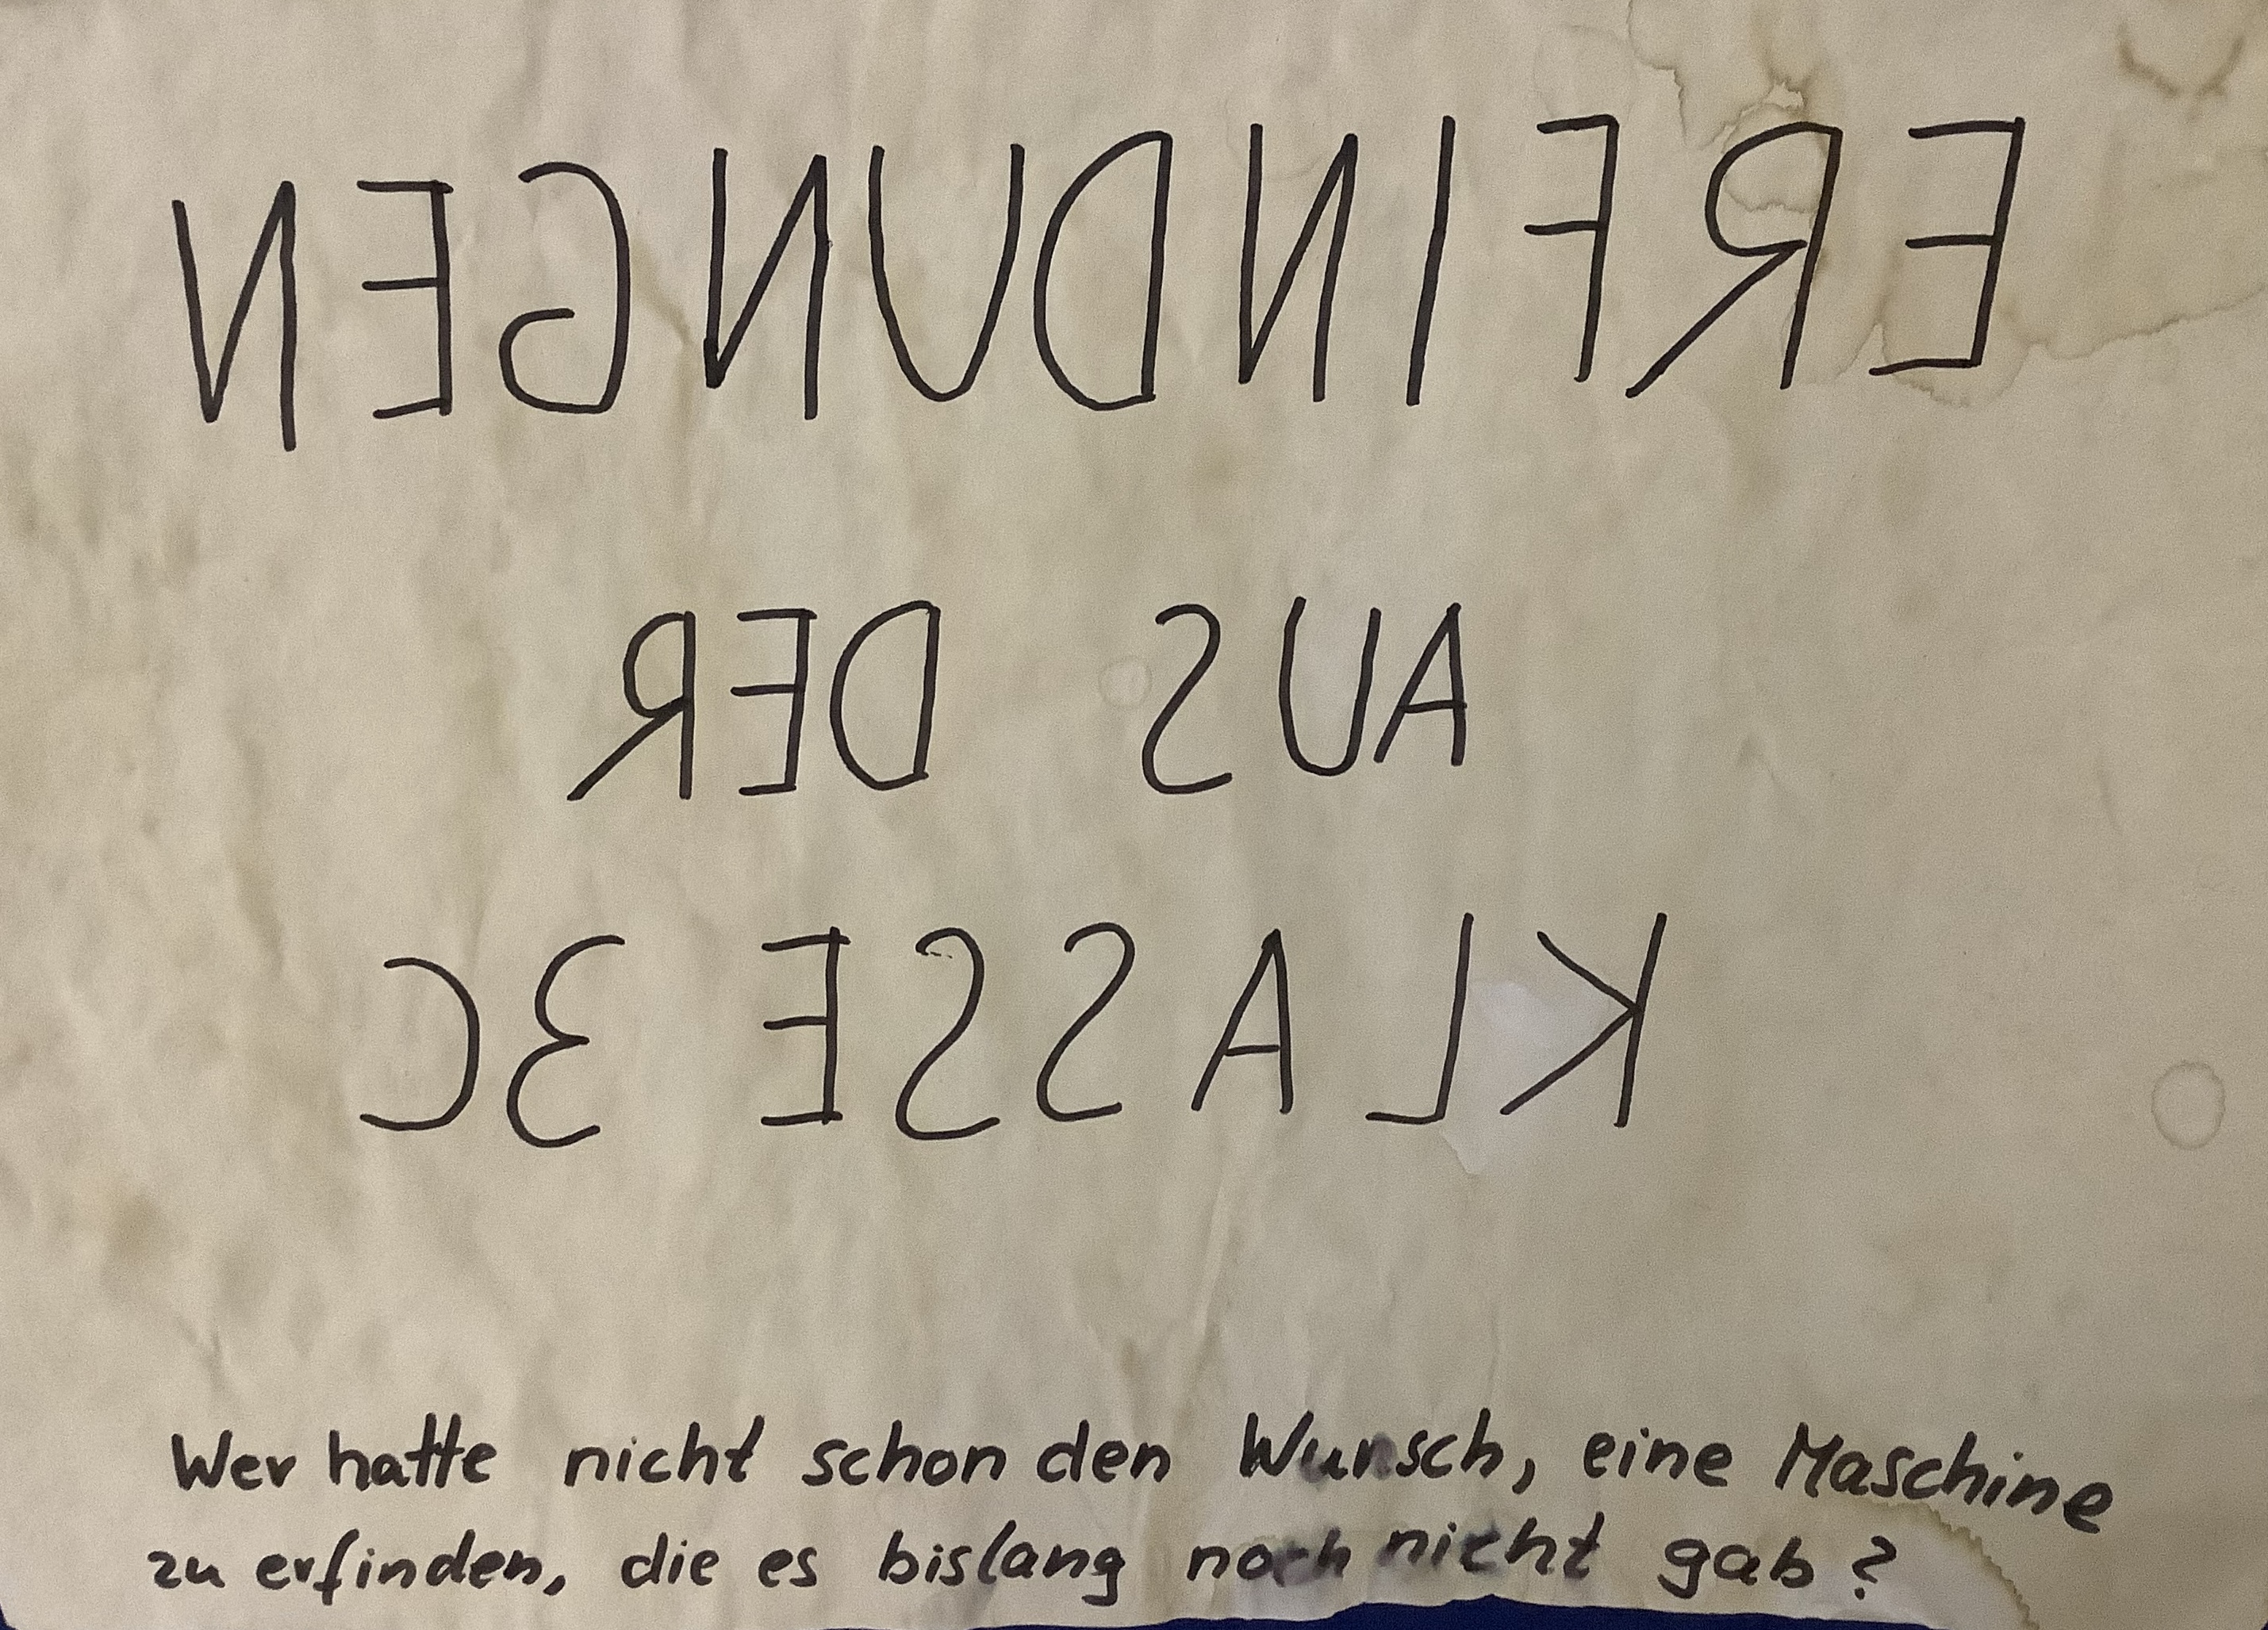 ERFINDUNGEN
AUS DER
KLASSE 3C
Wer hatte nicht schon den Wunsch, eine Maschine
zu erfinden, die es bislang noch nicht gab?